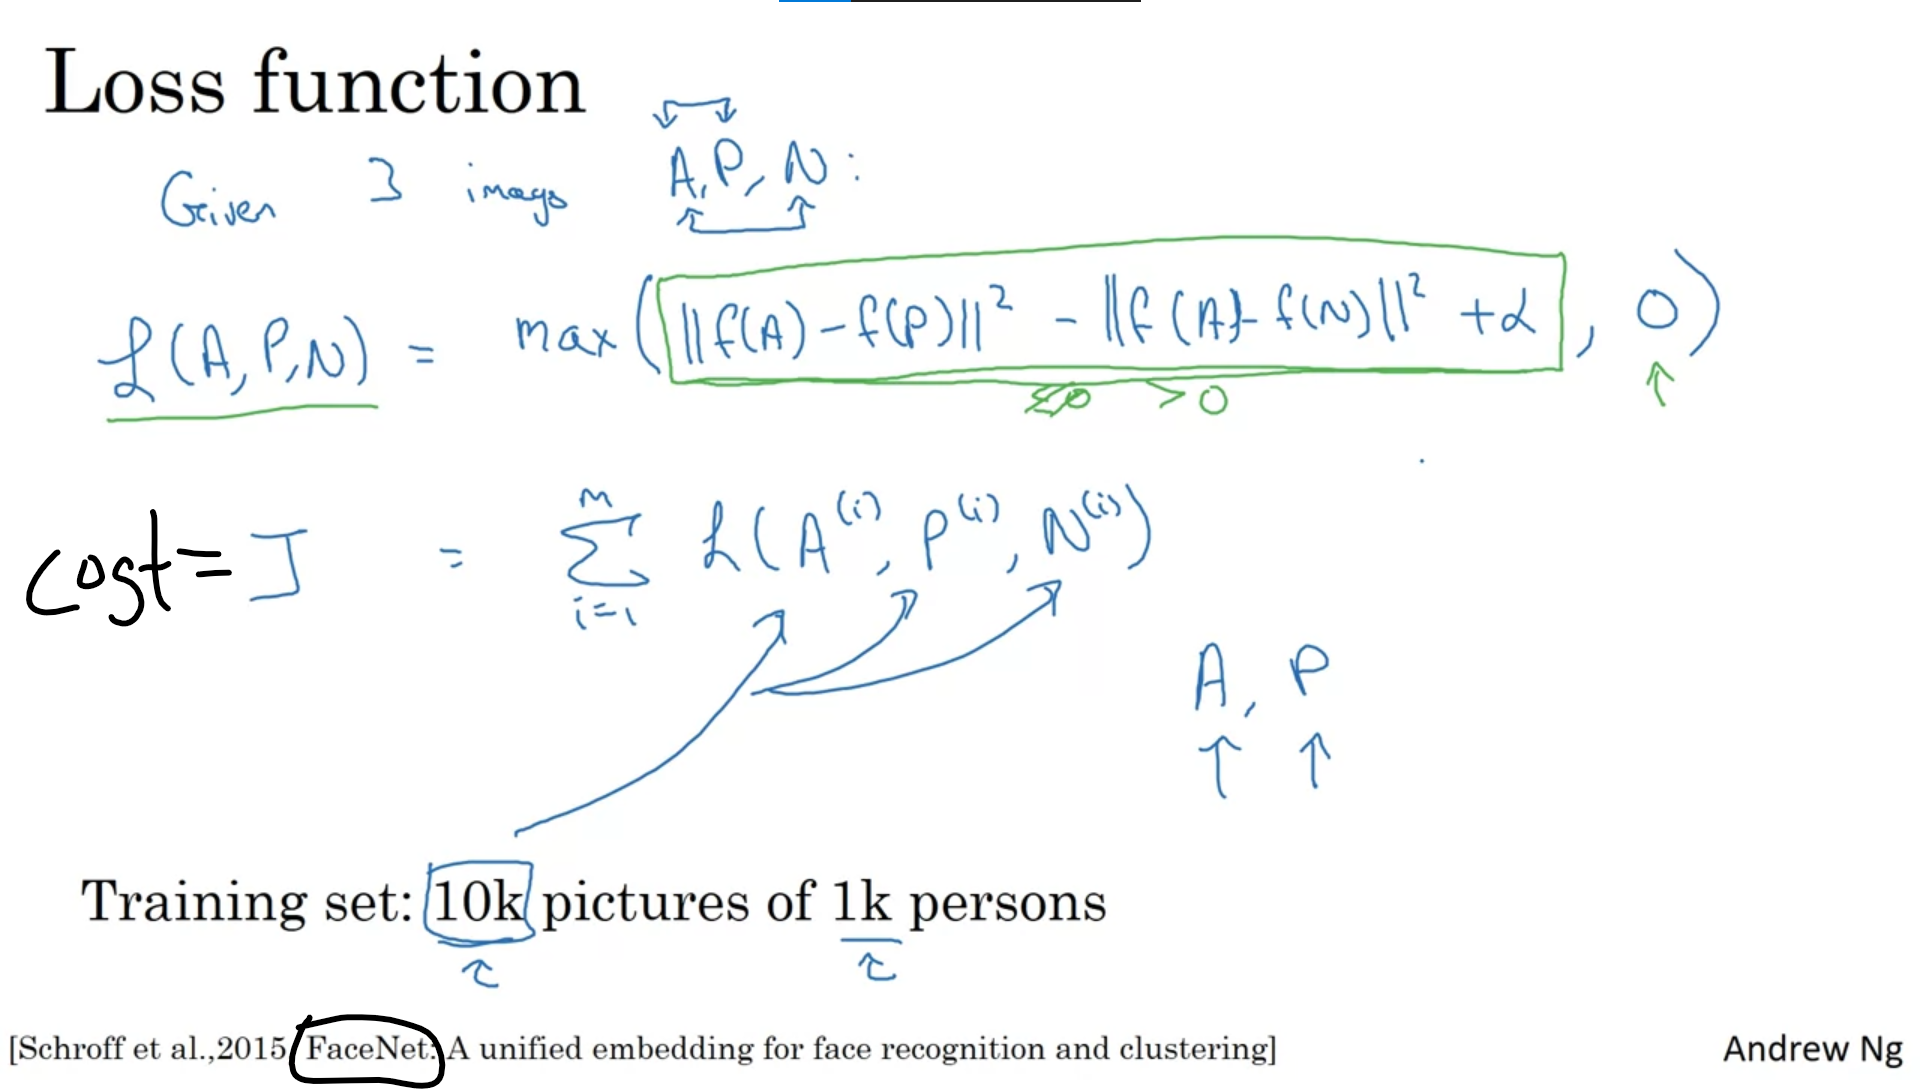 Loss function
Given 3 images A, P, N :
L(A,P,N) = max(||f(A) - f(P)||² - ||f(A) - f(N)||² + α, 0)
≤0 > 0
cost = J = Σ L(A⁽ⁱ⁾, P⁽ⁱ⁾, N⁽ⁱ⁾)
M
i=1
A, P
Training set: 10k pictures of 1k persons
[Schroff et al.,2015, FaceNet: A unified embedding for face recognition and clustering]
Andrew Ng